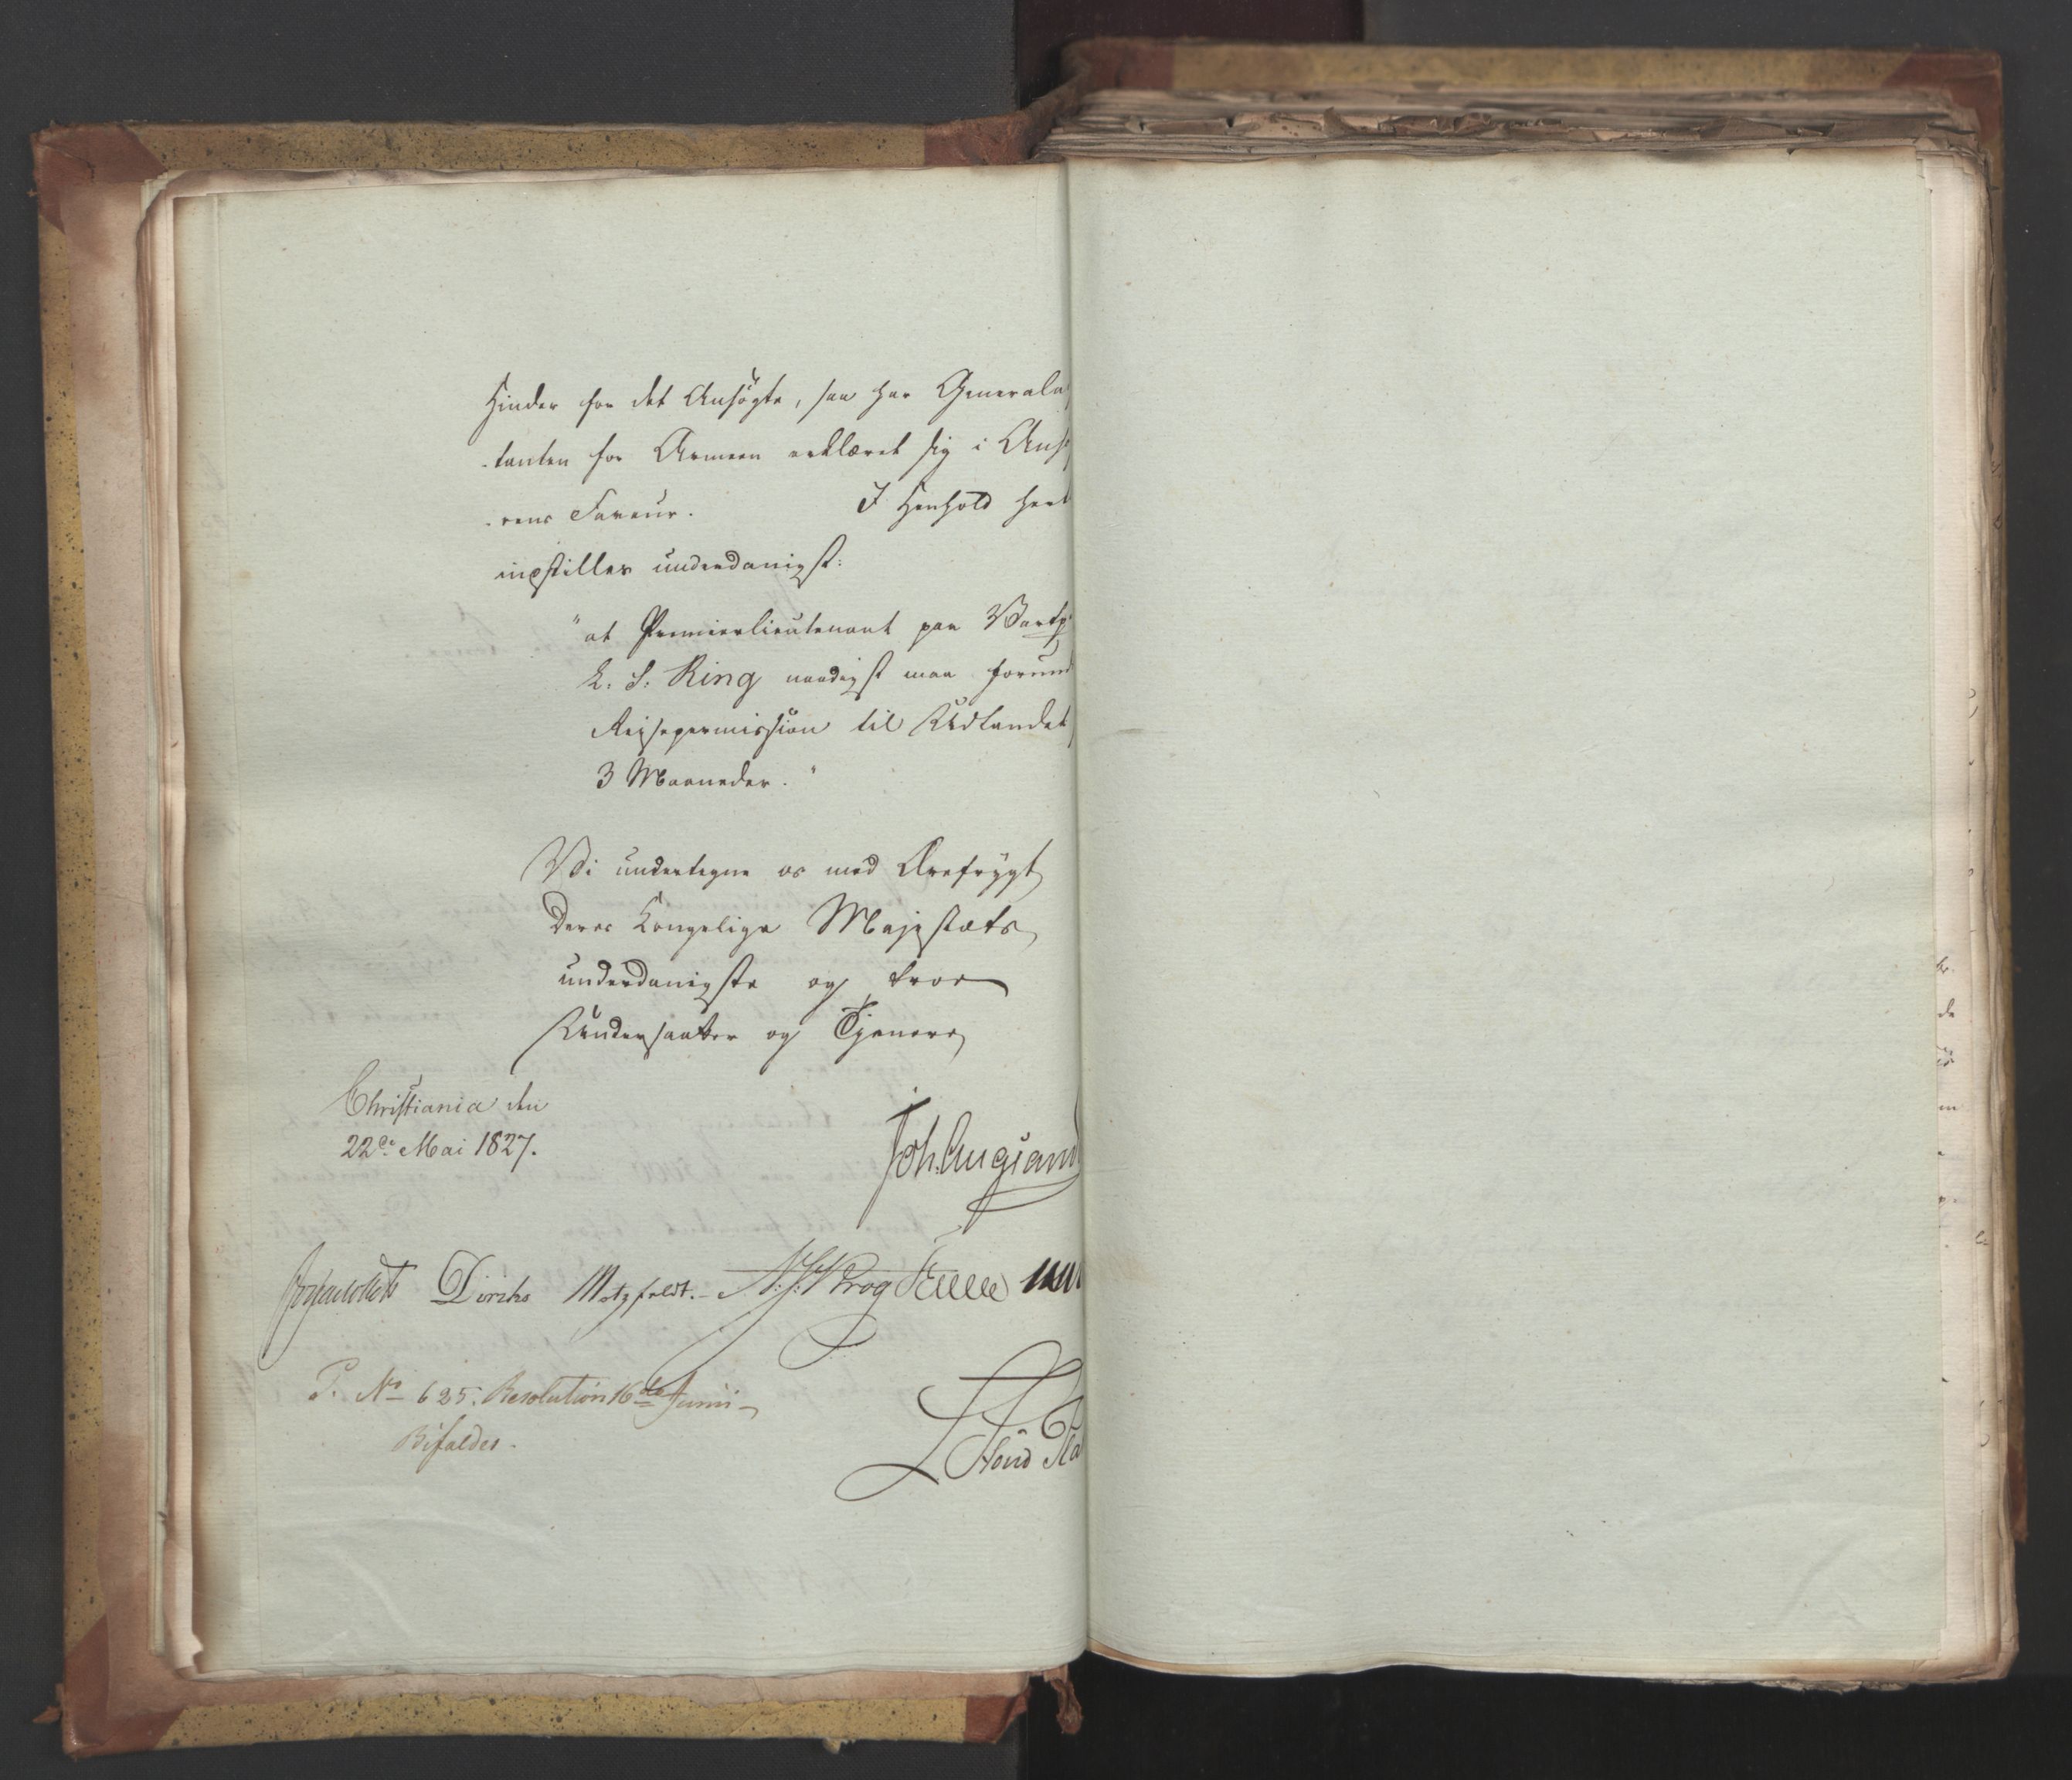 Hinder for det Ansögte, saa har Generala
-tanten for Armeen erklæret sig i Ansø
-rens Faveur. I Henhold hert
indstilles underdanigst:
"at Premierlieutenant paa Vartp
L. S. Ring naadigst maa forund
Reisepermission til Udlandet
3 Maaneder."
Vi undertegne os med Ærefrygt
Deres Kongelige Majestæts
underdanigste og troe
Undersaatter og Tjenere
Christiania den
22de Mai 1827.
Joh. Aug Sand
Diriks Motzfeldt. N. J. Krog
P. No 625. Resolution 16de Junii
Bifaldes.